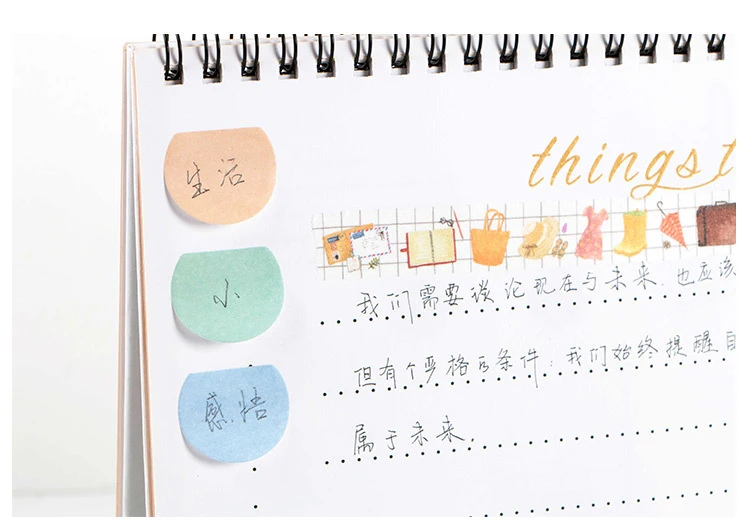 生活
小
感悟
things t
我们需要谈论现在与未来.也应该
但有个严格的条件:我们始终提醒自
属于未来.